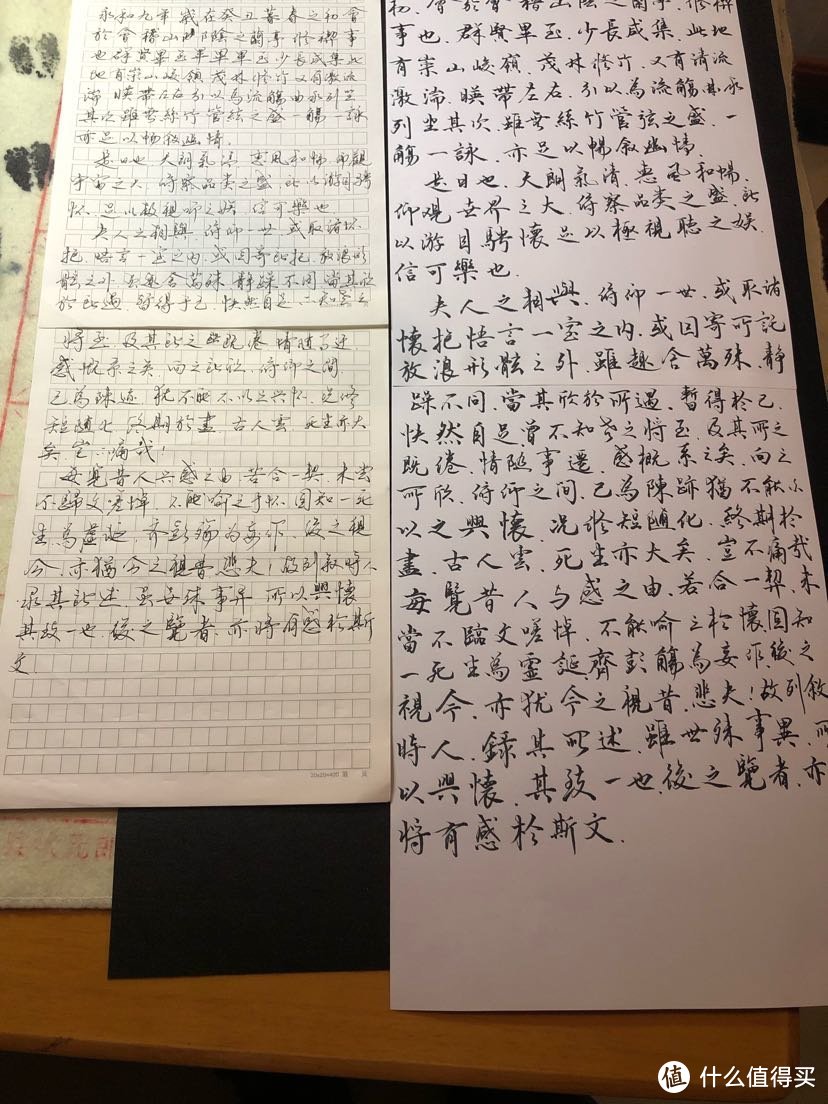 永和九年歲在癸丑暮春之初會
於會稽山陰之蘭亭修禊事
也群賢畢至少長咸集此
地有崇山峻嶺茂林修竹又有激流
湍映帶左右引以為流觴曲水列坐
其次雖無絲竹管弦之盛一觴一詠
亦足以暢敘幽情
是日也天朗氣清惠風和暢仰觀
宇宙之大俯察品类之盛所以游目騁
懷足以極視听之娱信可樂也
夫人之相與俯仰一世或取諸懷
抱悟言一室之内或因寄所托放浪形
骸之外雖趣舍萬殊静躁不同當其欣
於所遇暫得于己快然自足不知老之
將至及其所之既倦情隨事迁
感慨系之矣向之所欣俯仰之間
已為陳迹犹不能不以之興怀况修
短隨化終期於盡古人雲死生亦大
矣豈不痛哉！
每覽昔人興感之由若合一契未嘗
不臨文嗟悼不能喻之于怀固知一死
生為虚诞齐彭殇为妄作後之視
今亦猶今之視昔悲夫！故列敘時人
录其所述虽世殊事异所以興懷
其致一也後之覽者亦將有感於斯
文
20x20=400 第 頁
初,會於會稽山陰之蘭亭,修禊
事也.群賢畢至,少長咸集.此地
有崇山峻嶺,茂林修竹,又有清流
激湍,映帶左右,引以為流觴曲水
列坐其次,雖無絲竹管弦之盛,一
觴一詠,亦足以暢敘幽情
是日也,天朗氣清,惠風和暢,
仰觀世界之大,俯察品类之盛所
以游目騁懷足以極視聽之娱.
信可樂也.
夫人之相與,俯仰一世,或取诸
懷抱悟言一室之内,或因寄所託
放浪形骸之外,雖趣舍萬殊,静
躁不同,當其欣於所遇,暫得於己,
快然自足曾不知老之将至,及其所之
既倦,情随事遷,感概系之矣,向之
所欣,俯仰之間,已為陳跡猶不能不
以之興懷,况修短随化,終期於
盡,古人雲,死生亦大矣,豈不痛哉
每覽昔人与感之由,若合一契,未
當不臨文嗟悼,不能喻之於懷固知
一死生為靈誕,齊彭觴為妄作後之
視今,亦犹今之視昔,悲夫!故列敘
時人,録其所述,雖世殊事異,所
以興懷,其致一也,後之覽者,亦
将有感於斯文.
值 什么值得买